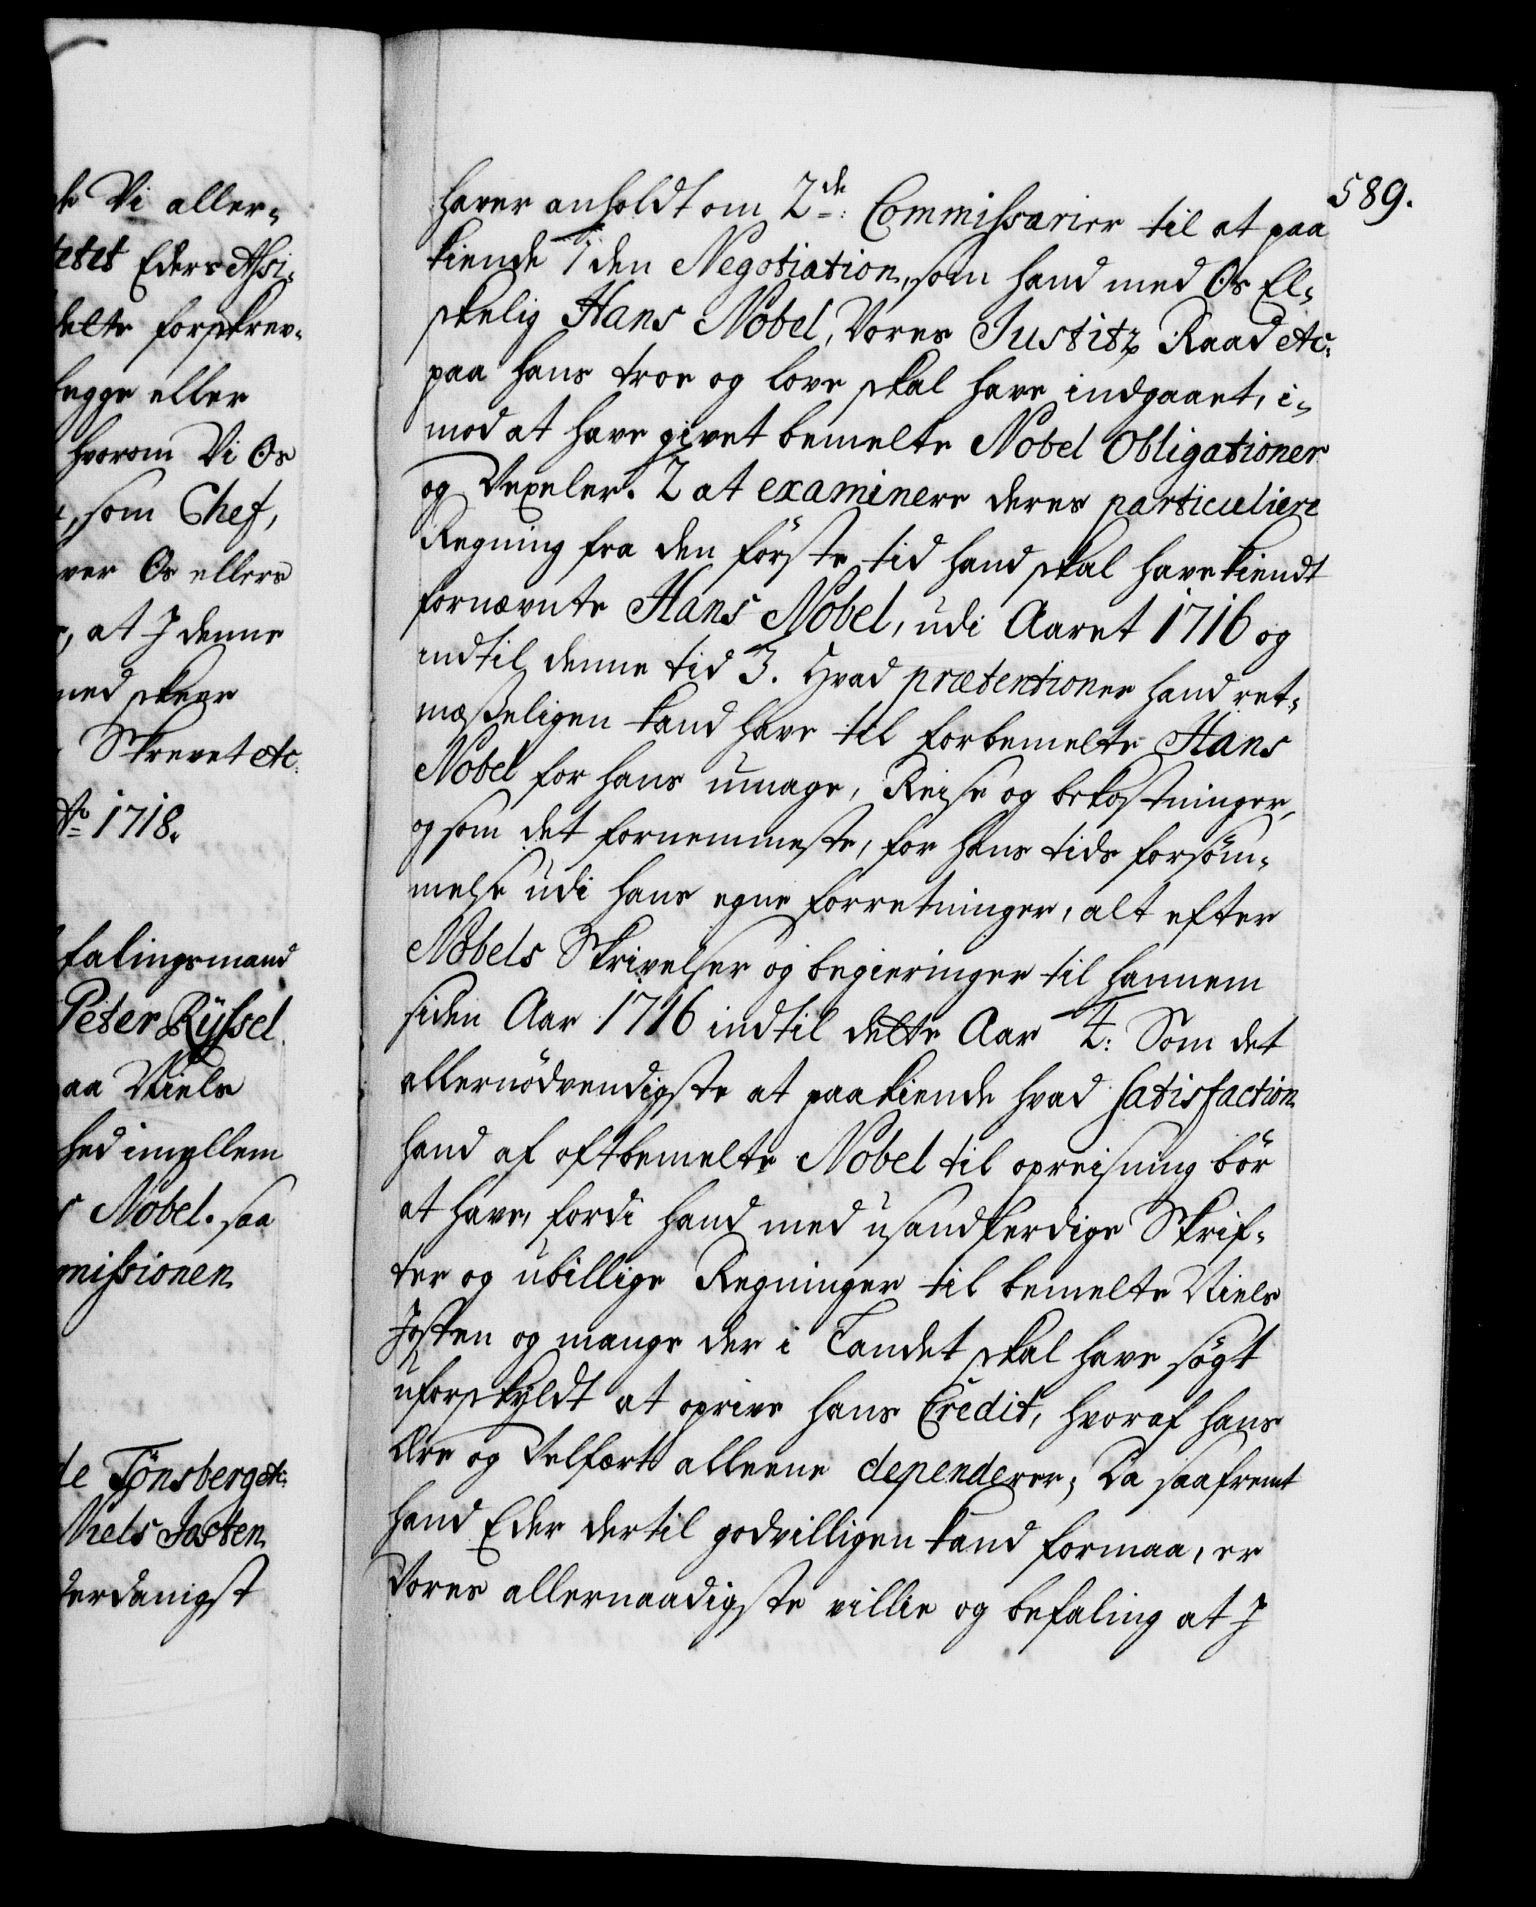 te Vi aller-
tetet Eders Assi-
delte forskrev-
legge eller
hvorom Vi Os
, som Chef,
ver Os ellers
, at I denne
med skeer
Skrevet etc.
Ao 1718.
falingsmand
Peter Ryssel
aa Niels
hed imellem
s Nobel. saa
missionen
de Tønsberg etc.
Niels Josten
derdanigst
589.
haver anholdt om 2de: Commissarier til at paa
kiende 1 den Negotiation, som hand med Os El-
skelig Hans Nobel, Vores Justitz Raad etc:
paa hans troe og love skal have indgaaet, i-
mod at have givet bemelte Nobel Obligationer
og Vexeler. 2 at examinere deres particuliere
Regning fra den förste tid hand skal have kiendt
fornævnte Hans Nobel, udi Aaret 1716 og
indtil denne tid 3. Hvad prætentioner hand ret-
mæsseligen kand have til forbemelte Hans
Nobel for hans umage, Reise og bekostninger,
og som det fornemmeste, for hans tids forsöm-
melse udi hans egne forretninger, alt efter
Nobels Skrivelser og begieringer til hannem
siden Aar 1716 indtil dette Aar 4: Som det
allernödvendigste at paakiende hvad satisfaction
hand af oftbemelte Nobel til opreisning bör
at have, fordi hand med usandferdige Skrif-
ter og ubillige Regninger til bemelte Niels
Josten og mange der i Landet skal have sögt
uforskyldt at oprive hans Credit, hvoraf hans
Ære og Velfært alleene dependerer; Da saafremt
hand Eder dertil godvilligen kand formaa, er
Vores allernaadigste villie og befaling at I